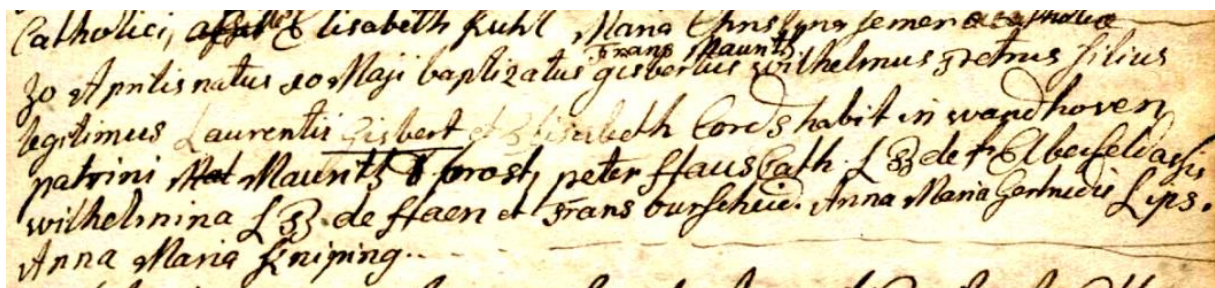 Catholici, Elisabeth Kuhl Maria
Frans Mauritz
30 Aprilis natus 10 Maji baptizatus gisbertus wilhelmus petrus filius
legitimus Laurentii Gisbert et Elisabeth Cords habit in wandhoven
patrini Mauritz prost, peter Haus Cath. L B de Elberfeld
wilhelmina L B. de Haen et Frans burscheid. Anna Maria Gertrudis Lips.
Anna Maria Kniping..